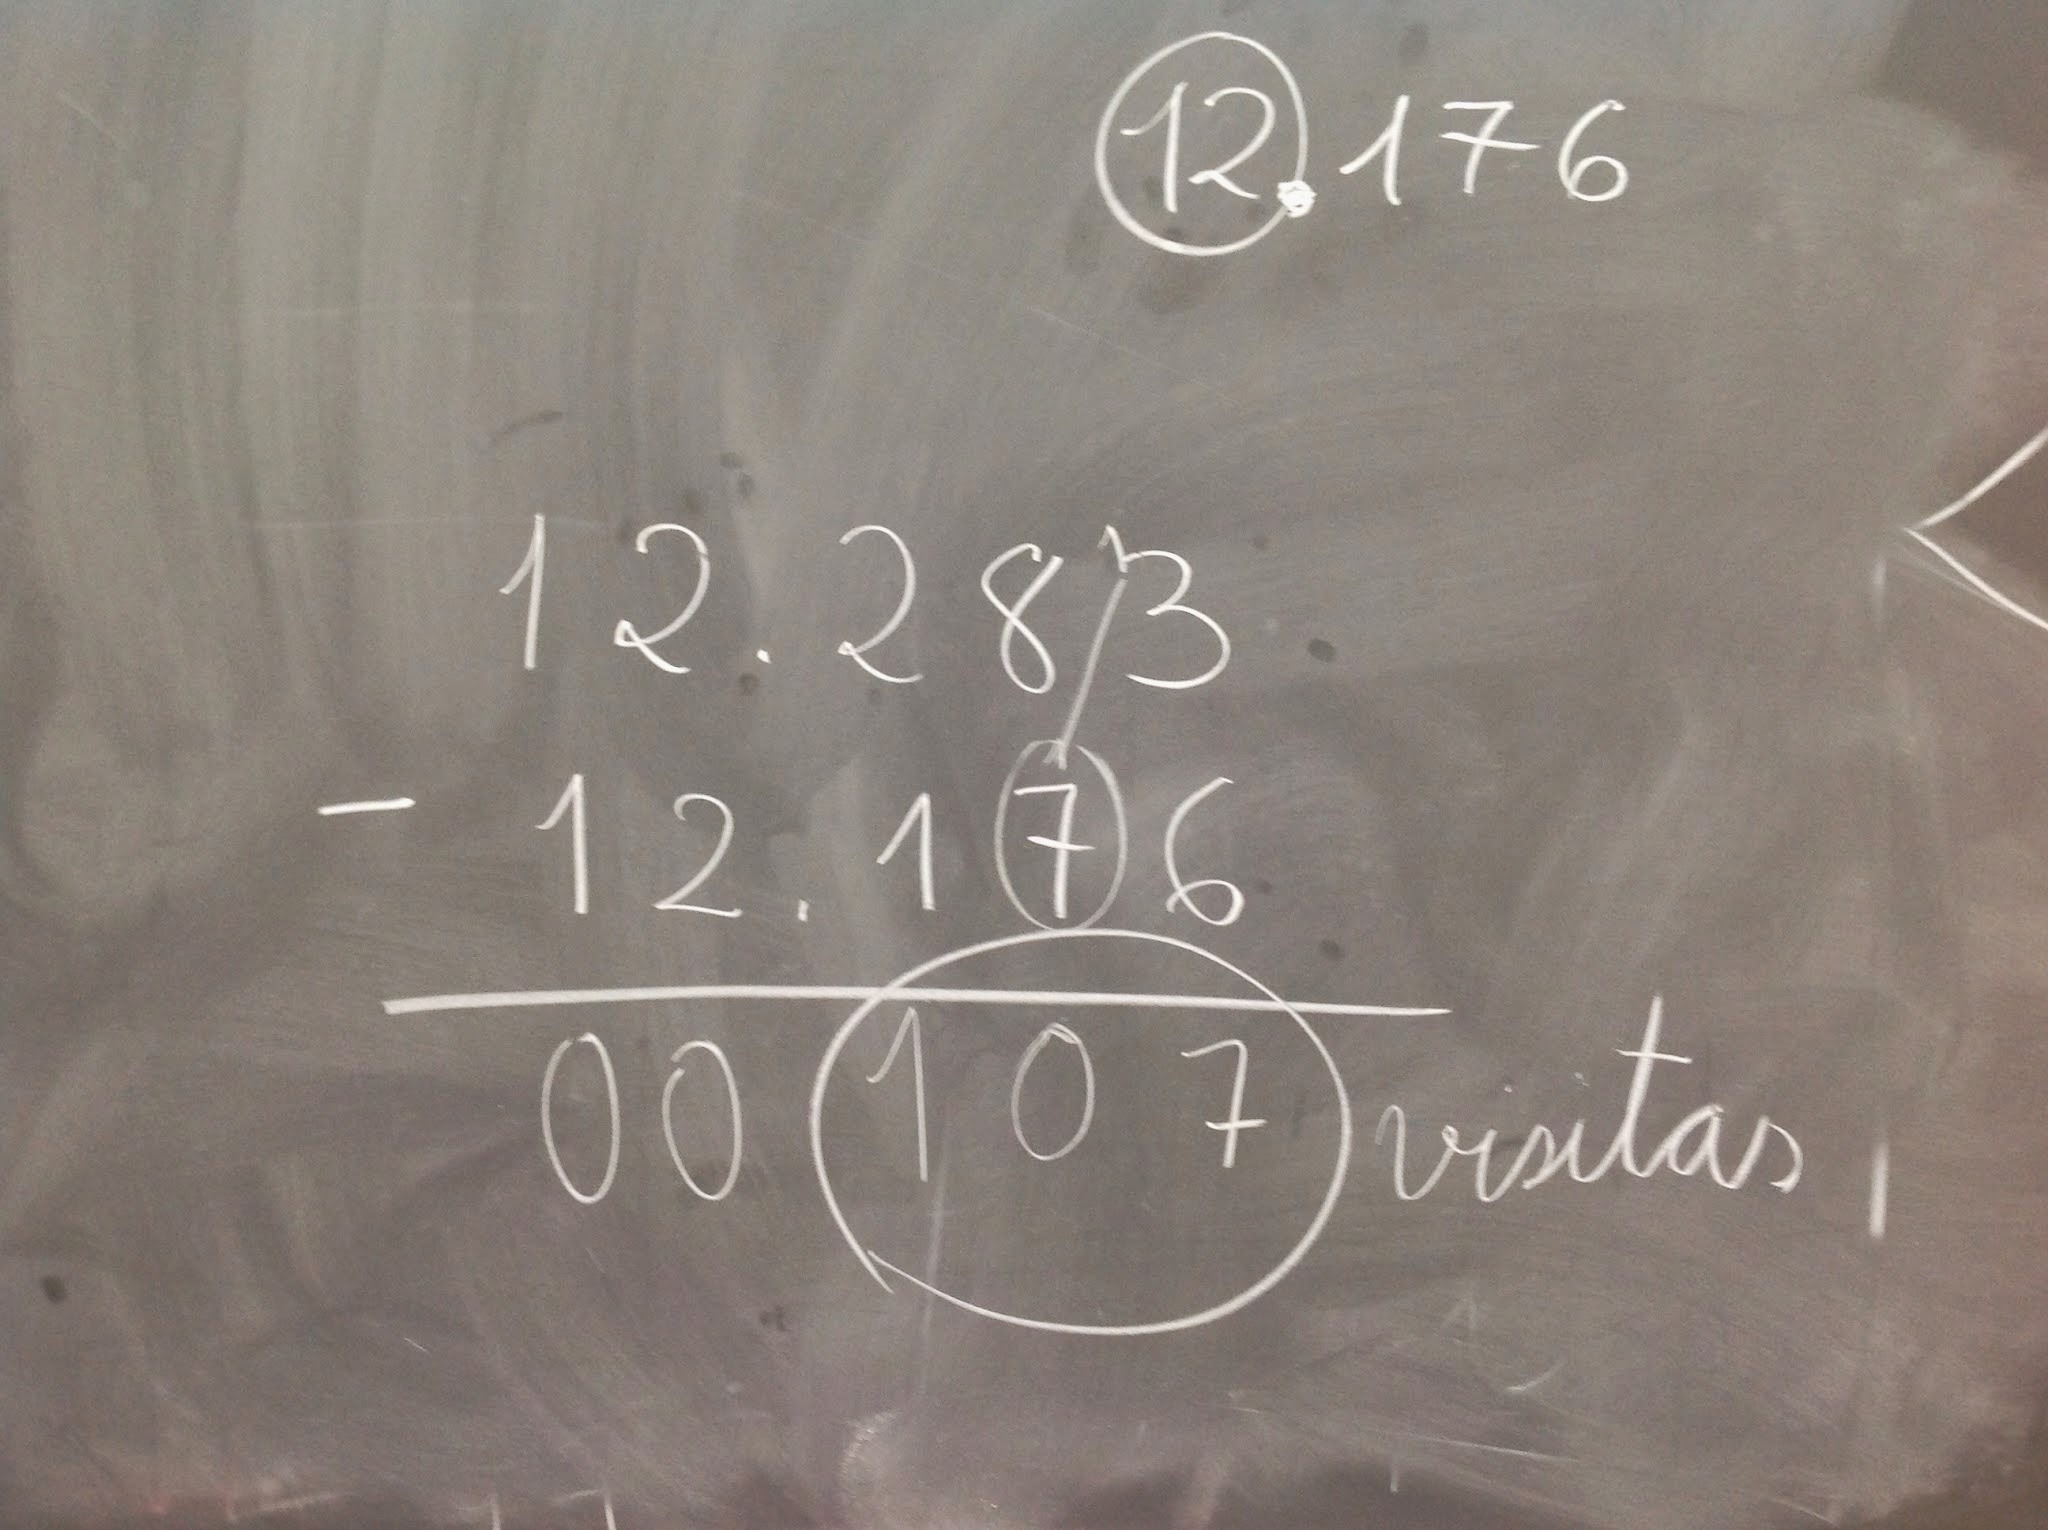 12.176
12.283
- 12.176
00107 visitas